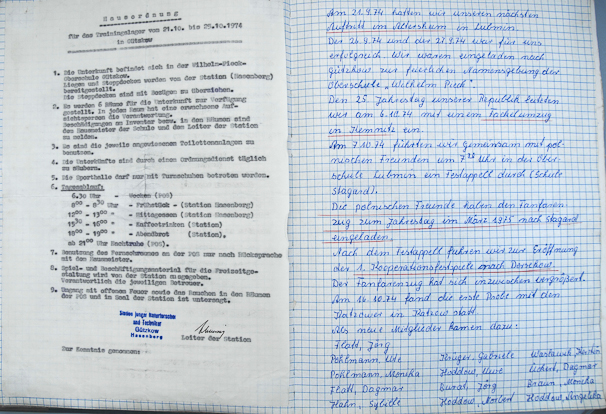 Hausordnung
für das Trainingslager vom 21.10. bis 25.10.1974
in Gützkow
1. Die Unterkunft befindet sich in der Wilhelm-Pieck-
Oberschule Gützkow.
Liegen und Steppdecken werden von der Station (Hasenberg)
bereitgestellt.
Die Steppdecken sind mit Bezügen zu überziehen.
2. Es werden 6 Räume für die Unterkunft zur Verfügung
gestellt. In jedem Raum hat eine erwachsene Auf-
sichtsperson die Verantwortung.
Beschädigungen an Inventar bezw. in den Räumen sind
dem Hausmeister der Schule und dem Leiter der Station
zu melden.
3. Es sind die jeweils angewiesenen Toilettenanlagen zu
benutzen.
4. Die Unterkünfte sind durch einen Ordnungsdienst täglich
zu säubern.
5. Die Sporthalle darf nur mit Turnschuhen betreten werden.
6. Tagesablauf:
6.30 Uhr - Wecken (POS)
8°° - 8³⁰ Uhr - Frühstück - (Station Hasenberg)
12°° - 13°° - Mittagessen (Station Hasenberg)
15³⁰ - 16°° - Kaffeetrinken (Station)
18°° - 19°° - Abendbrot (Station),
ab 21°° Uhr Nachtruhe (POS).
7. Benutzung des Fernsehraumes an der POS nur nach Rücksprache
mit dem Hausmeister.
8. Spiel- und Beschäftigungsmaterial für die Freizeitge-
staltung wird von der Station ausgegeben.
Verantwortlich die jeweiligen Betreuer.
9. Umgang mit offenem Feuer sowie das Rauchen in den Räumen
der POS und im Saal der Station ist untersagt.
Station junger Naturforscher
und Techniker
Gützkow
Hasenberg
Leiter der Station
Zur Kenntnis genommen:
Am 21.9.74 hatten wir unseren nächsten
Auftritt im Altersheim in Lubmin.
Der 26.9.74 und der 27.9.74 war für uns
erfolgreich. Wir waren eingeladen nach
Gützkow zur feierlichen Namensgebung der
Oberschule „Wilhelm Pieck".
Den 25. Jahrestag unserer Republik leiteten
wir am 6.10.74 mit einem Fackelumzug
in Kemnitz ein.
Am 7.10.74 führten wir Gemeinsam mit pol-
nischen Freunden um 7 Uhr in der Ober-
schule Lubmin ein Festappell durch (Schule
Stagard).
Die polnischen Freunde haben den Fanfaren
zug zum Jahrestag im März 1975 nach Stagard
eingeladen.
Nach dem Festappell fuhren wir zur Eröffnung
der 1. Kooperationsfestspiele nach Dersekow.
Der Fanfarenzug hat sich inzwischen vergrößert.
Am 16.10.74 fand die erste Probe mit den
Ratzower in Ratzow statt.
Als neue Mitglieder kamen dazu:
Flatt, Jörg
Pohlmann, Ute Krüger, Gabriele Kerstin
Pohlmann, Monika Hoddow, Uwe Dagmar
Flatt, Dagmar Burat, Jörg Braun, Monika
Hahn, Sybille Hoddow, Norbert Hoddow, Angelika